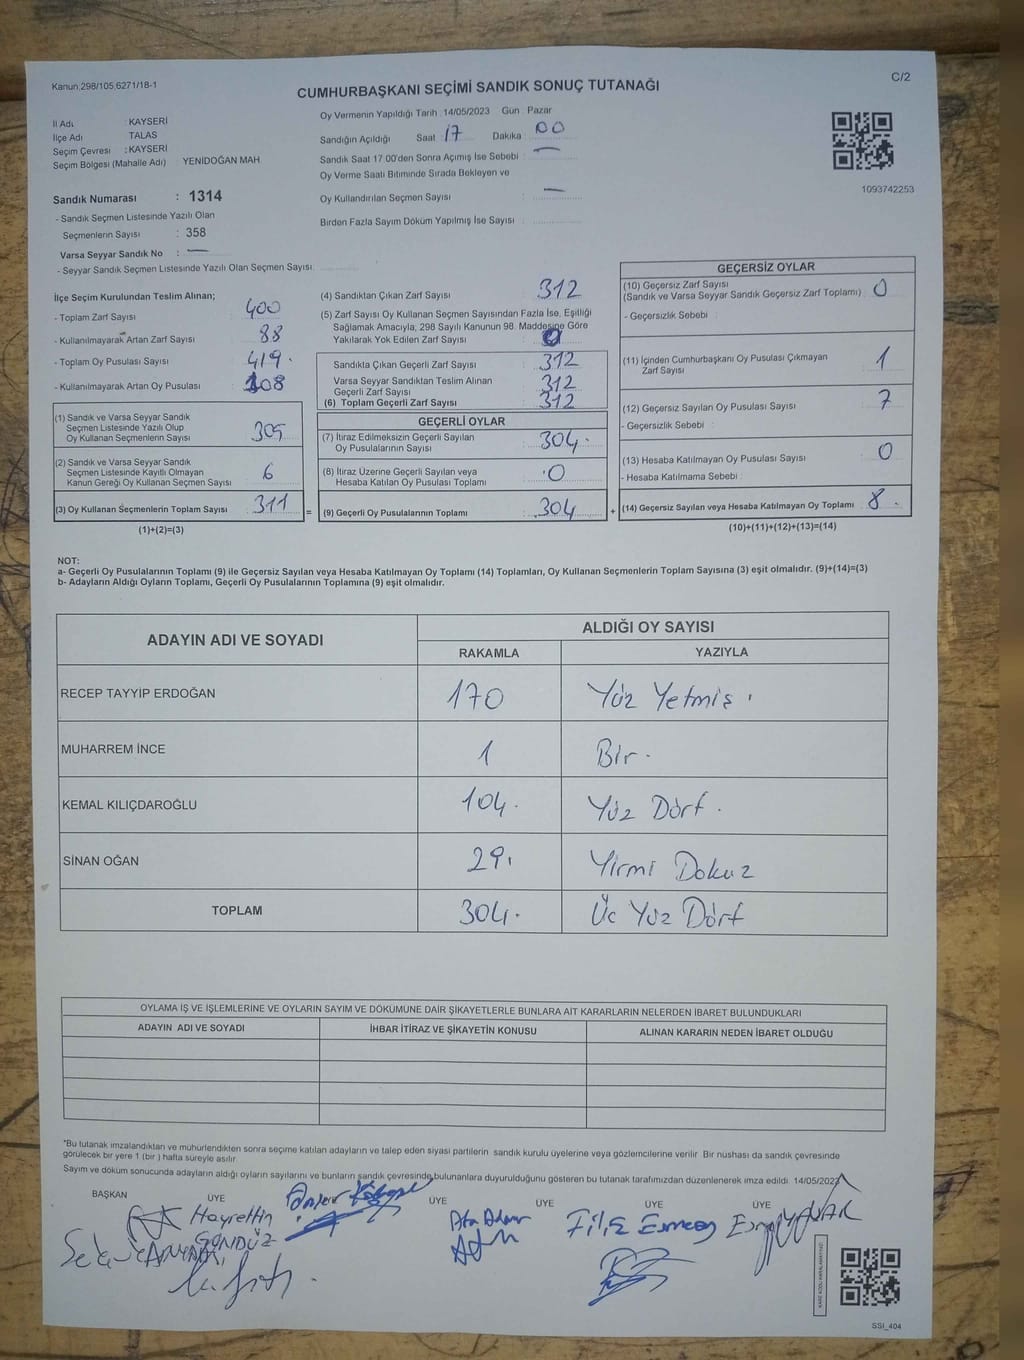 Kanun 298/105,6271/18-1
C/2
CUMHURBAŞKANI SEÇİMİ SANDIK SONUÇ TUTANAĞI
İl Adı : KAYSERİ
İlçe Adı TALAS
Seçim Çevresi : KAYSERİ
Seçim Bölgesi (Mahalle Adı) : YENİDOĞAN MAH.
Sandık Numarası : 1314
- Sandık Seçmen Listesinde Yazılı Olan
Seçmenlerin Sayısı : 358
Varsa Seyyar Sandık No : —
- Seyyar Sandık Seçmen Listesinde Yazılı Olan Seçmen Sayısı
Oy Vermenin Yapıldığı Tarih 14/05/2023 Gün Pazar
Sandığın Açıldığı Saat 17 Dakika 00
Sandık Saat 17 00'den Sonra Açımış İse Sebebi : —
Oy Verme Saati Bitiminde Sırada Bekleyen ve
Oy Kullandırılan Seçmen Sayısı : —
Birden Fazla Sayım Döküm Yapılmış İse Sayısı :
1093742253
İlçe Seçim Kurulundan Teslim Alınan;
- Toplam Zarf Sayısı : 400
- Kullanılmayarak Artan Zarf Sayısı : 88
- Toplam Oy Pusulası Sayısı : 419.
- Kullanılmayarak Artan Oy Pusulası : 108
(1) Sandık ve Varsa Seyyar Sandık
Seçmen Listesinde Yazılı Olup
Oy Kullanan Seçmenlerin Sayısı : 305
(2) Sandık ve Varsa Seyyar Sandık
Seçmen Listesinde Kayıtlı Olmayan
Kanun Gereği Oy Kullanan Seçmen Sayısı : 6
(3) Oy Kullanan Seçmenlerin Toplam Sayısı : 311
(1)+(2)=(3)
(4) Sandıktan Çıkan Zarf Sayısı : 312
(5) Zarf Sayısı Oy Kullanan Seçmen Sayısından Fazla İse, Eşitliği
Sağlamak Amacıyla, 298 Sayılı Kanunun 98. Maddesine Göre
Yakılarak Yok Edilen Zarf Sayısı : 0
Sandıkta Çıkan Geçerli Zarf Sayısı : 312
Varsa Seyyar Sandıktan Teslim Alınan
Geçerli Zarf Sayısı : 312
(6) Toplam Geçerli Zarf Sayısı : 312
GEÇERLİ OYLAR
(7) İtiraz Edilmeksizin Geçerli Sayılan
Oy Pusulalarının Sayısı : 304.
(8) İtiraz Üzerine Geçerli Sayılan veya
Hesaba Katılan Oy Pusulası Toplamı : 0
= (9) Geçerli Oy Pusulalarının Toplamı : 304
GEÇERSİZ OYLAR
(10) Geçersiz Zarf Sayısı
(Sandık ve Varsa Seyyar Sandık Geçersiz Zarf Toplamı) : 0
- Geçersizlik Sebebi :
(11) İçinden Cumhurbaşkanı Oy Pusulası Çıkmayan
Zarf Sayısı : 1
(12) Geçersiz Sayılan Oy Pusulası Sayısı : 7
- Geçersizlik Sebebi :
(13) Hesaba Katılmayan Oy Pusulası Sayısı : 0
- Hesaba Katılmama Sebebi :
+ (14) Geçersiz Sayılan veya Hesaba Katılmayan Oy Toplamı : 8.
(10)+(11)+(12)+(13)=(14)
NOT:
a- Geçerli Oy Pusulalarının Toplamı (9) ile Geçersiz Sayılan veya Hesaba Katılmayan Oy Toplamı (14) Toplamları, Oy Kullanan Seçmenlerin Toplam Sayısına (3) eşit olmalıdır. (9)+(14)=(3)
b- Adayların Aldığı Oyların Toplamı, Geçerli Oy Pusulalarının Toplamına (9) eşit olmalıdır.
ADAYIN ADI VE SOYADI
ALDIĞI OY SAYISI
RAKAMLA YAZIYLA
RECEP TAYYİP ERDOĞAN 170 Yüz Yetmiş.
MUHARREM İNCE 1 Bir.
KEMAL KILIÇDAROĞLU 104. Yüz Dört.
SİNAN OĞAN 29. Yirmi Dokuz
TOPLAM 304. Üc Yüz Dört
OYLAMA İŞ VE İŞLEMLERİNE VE OYLARIN SAYIM VE DÖKÜMÜNE DAİR ŞİKAYETLERLE BUNLARA AİT KARARLARIN NELERDEN İBARET BULUNDUKLARI
ADAYIN ADI VE SOYADI İHBAR İTİRAZ VE ŞİKAYETİN KONUSU ALINAN KARARIN NEDEN İBARET OLDUĞU
"Bu tutanak imzalandıktan ve mühürlendikten sonra seçime katılan adayların ve talep eden siyasi partilerin sandık kurulu üyelerine veya gözlemcilerine verilir Bir nüshası da sandık çevresinde
görülecek bir yere 1 (bir ) hafta süreyle asılır.
Sayım ve döküm sonucunda adayların aldığı oyların sayılarını ve bunların sandık çevresinde bulunanlara duyurulduğunu gösteren bu tutanak tarafımızdan düzenlenerek imza edildi 14/05/2023
BAŞKAN ÜYE ÜYE ÜYE ÜYE ÜYE
Hayrettin
GÜNDÜZ
SSİ_404